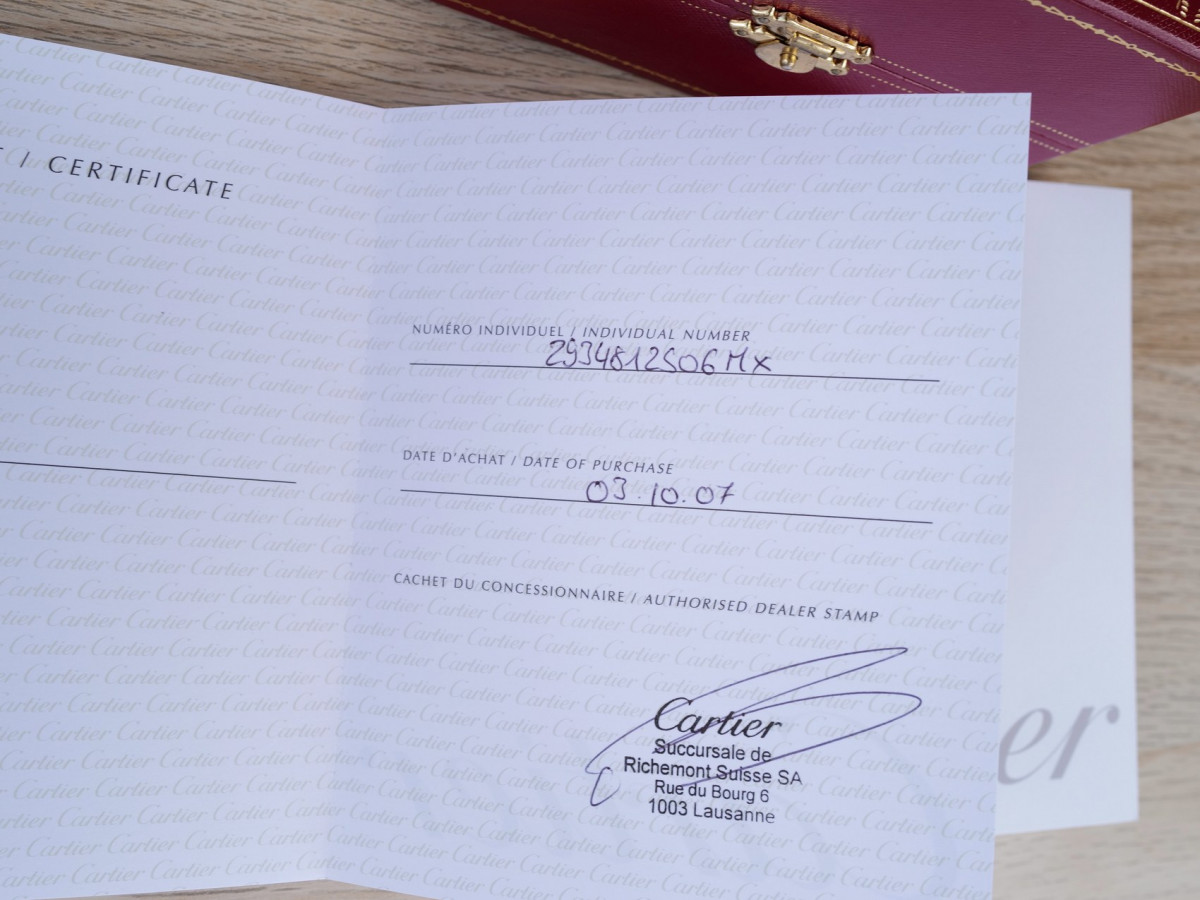 / CERTIFICATE
NUMÉRO INDIVIDUEL / INDIVIDUAL NUMBER
2934812506MX
DATE D'ACHAT / DATE OF PURCHASE
03.10.07
CACHET DU CONCESSIONNAIRE / AUTHORISED DEALER STAMP
Cartier
Succursale de
Richemont Suisse SA
Rue du Bourg 6
1003 Lausanne
er